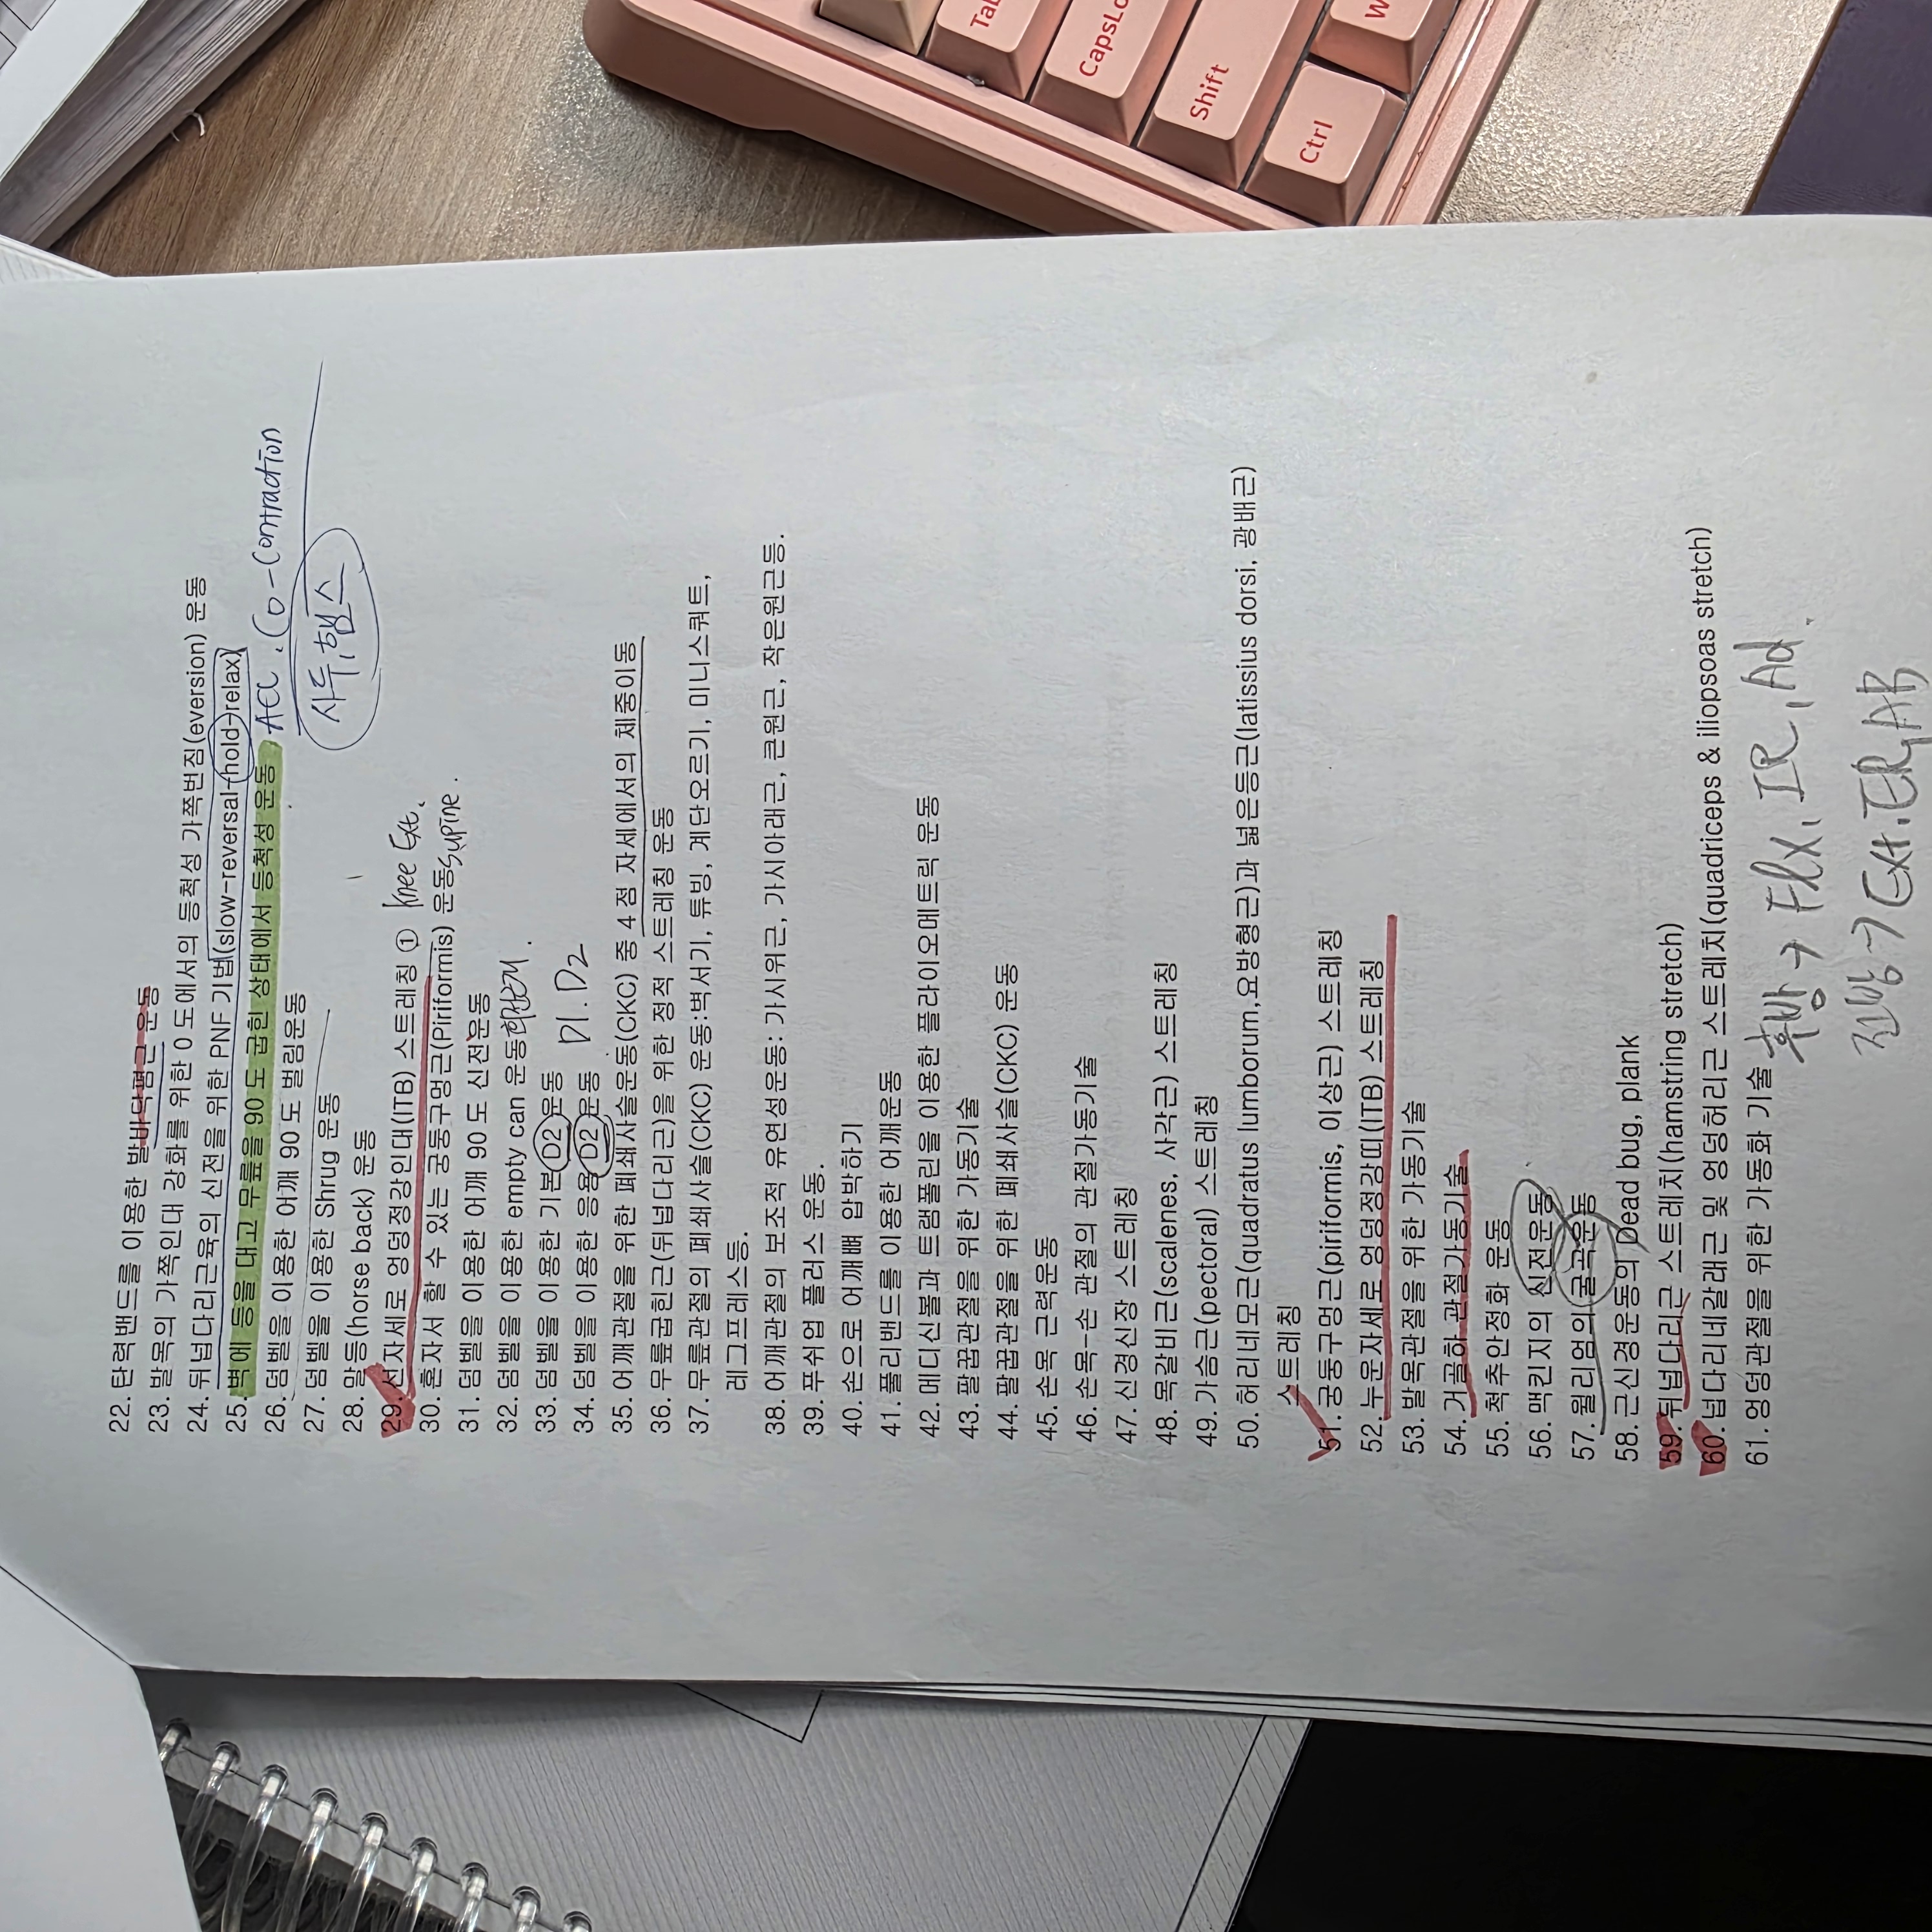 22. 탄력밴드를 이용한 발바닥쪽굽힘 운동
23. 발목의 가쪽인대 강화를 위한 0 도에서의 등척성 가쪽번짐(eversion) 운동
24. 뒤넙다리근육의 신전을 위한 PNF 기법(slow-reversal-hold-relax)
25. 벽에 등을 대고 무릎을 90 도 굽힌 상태에서 등척성 운동 ACL. Co-Contraction
사두,햄스
26. 덤벨을 이용한 어깨 90 도 벌림운동
27. 덤벨을 이용한 Shrug 운동
28. 말등(horse back) 운동
29. 선자세로 엉덩정강인대(ITB) 스트레칭 ① knee Ext.
30. 혼자서 할 수 있는 궁둥구멍근(Piriformis) 운동 supine.
31. 덤벨을 이용한 어깨 90 도 신전운동
32. 덤벨을 이용한 empty can 운동 회선근개.
33. 덤벨을 이용한 기본 D2 운동
34. 덤벨을 이용한 응용 D2 운동 D1. D2
35. 어깨관절을 위한 폐쇄사슬운동(CKC) 중 4 점 자세에서의 체중이동
36. 무릎굽힌근(뒤넙다리근)을 위한 정적 스트레칭 운동
37. 무릎관절의 폐쇄사슬(CKC) 운동:벽서기, 튜빙, 계단오르기, 미니스쿼트,
레그프레스등.
38. 어깨관절의 보조적 유연성운동: 가시위근, 가시아래근, 큰원근, 작은원근등.
39. 푸쉬업 플러스 운동.
40. 손으로 어깨뼈 압박하기
41. 풀리밴드를 이용한 어깨운동
42. 메디신볼과 트램폴린을 이용한 플라이오메트릭 운동
43. 팔꿉관절을 위한 가동기술
44. 팔꿉관절을 위한 폐쇄사슬(CKC) 운동
45. 손목 근력운동
46. 손목-손 관절의 관절가동기술
47. 신경신장 스트레칭
48. 목갈비근(scalenes, 사각근) 스트레칭
49. 가슴근(pectoral) 스트레칭
50. 허리네모근(quadratus lumborum,요방형근)과 넓은등근(latissius dorsi, 광배근)
스트레칭
51. 궁둥구멍근(piriformis, 이상근) 스트레칭
52. 누운자세로 엉덩정강띠(ITB) 스트레칭
53. 발목관절을 위한 가동기술
54. 거골하 관절가동기술
55. 척추안정화 운동
56. 맥킨지의 신전운동
57. 윌리엄의 굴곡운동
58. 근신경운동의 Dead bug, plank
59. 뒤넙다리근 스트레치(hamstring stretch)
60. 넙다리네갈래근 및 엉덩허리근 스트레치(quadriceps & iliopsoas stretch)
61. 엉덩관절을 위한 가동화 기술 후방→ Flx, IR, Ad.
전방→ Ext. ER, AB
Tab
CapsLo
Shift
W
Ctrl